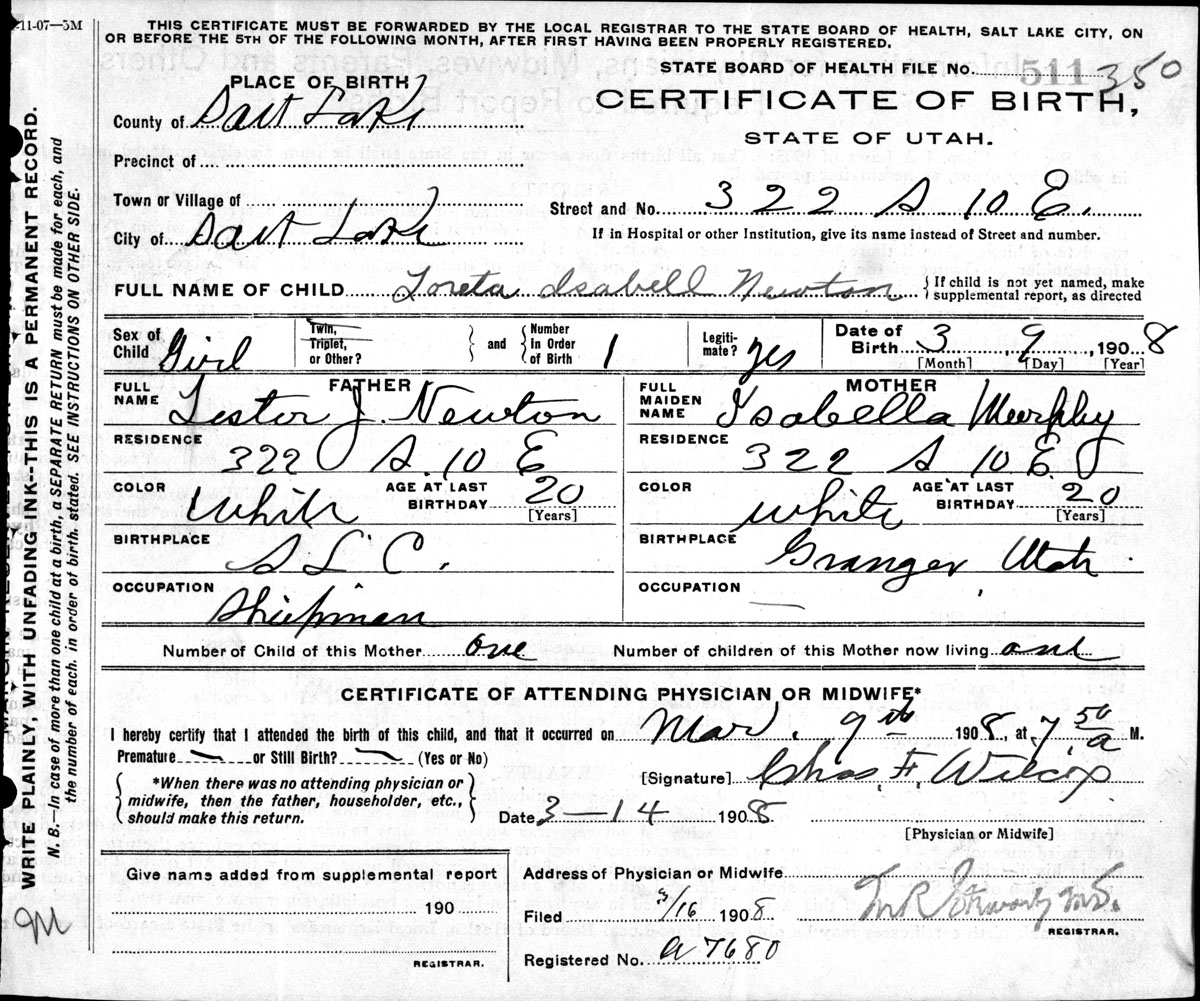 -11-07—5M
THIS CERTIFICATE MUST BE FORWARDED BY THE LOCAL REGISTRAR TO THE STATE BOARD OF HEALTH, SALT LAKE CITY, ON
OR BEFORE THE 5TH OF THE FOLLOWING MONTH, AFTER FIRST HAVING BEEN PROPERLY REGISTERED.
STATE BOARD OF HEALTH FILE No. 511 350
PLACE OF BIRTH
CERTIFICATE OF BIRTH,
STATE OF UTAH.
County of Salt Lake
Precinct of
Town or Village of
Street and No. 322 S. 10 E.
City of Salt Lake
If in Hospital or other Institution, give its name instead of Street and number.
FULL NAME OF CHILD Loreta Isabell Newton { If child is not yet named, make supplemental report, as directed
Sex of Child Girl Twin, Triplet, or Other? } and { Number In Order of Birth 1 Legiti-mate? yes Date of Birth 3 9, 1908
[Month] [Day] [Year]
FATHER
FULL NAME Lester J. Newton
RESIDENCE 322 S. 10 E
COLOR White AGE AT LAST BIRTHDAY 20 [Years]
BIRTHPLACE S L C.
OCCUPATION Shipman
MOTHER
FULL MAIDEN NAME Isabella Murphy
RESIDENCE 322 S 10 E
COLOR White AGE AT LAST BIRTHDAY 20 [Years]
BIRTHPLACE Granger Utah
OCCUPATION —
Number of Child of this Mother one Number of children of this Mother now living one
CERTIFICATE OF ATTENDING PHYSICIAN OR MIDWIFE*
I hereby certify that I attended the birth of this child, and that it occurred on Mar. 9th 1908, at 7 50 a M.
Premature — or Still Birth? — (Yes or No)
{ *When there was no attending physician or midwife, then the father, householder, etc., should make this return. }
[Signature] Chas. F. Wilcox
Date 3—14 1908
[Physician or Midwife]
Give name added from supplemental report
190
REGISTRAR.
Address of Physician or Midwife
Filed 3/16 1908
M.D.
REGISTRAR.
Registered No. a 7680
WRITE PLAINLY, WITH UNFADING INK--THIS IS A PERMANENT RECORD.
N. B.—In case of more than one child at a birth, a SEPARATE RETURN must be made for each, and
the number of each, in order of birth, stated. SEE INSTRUCTIONS ON OTHER SIDE.